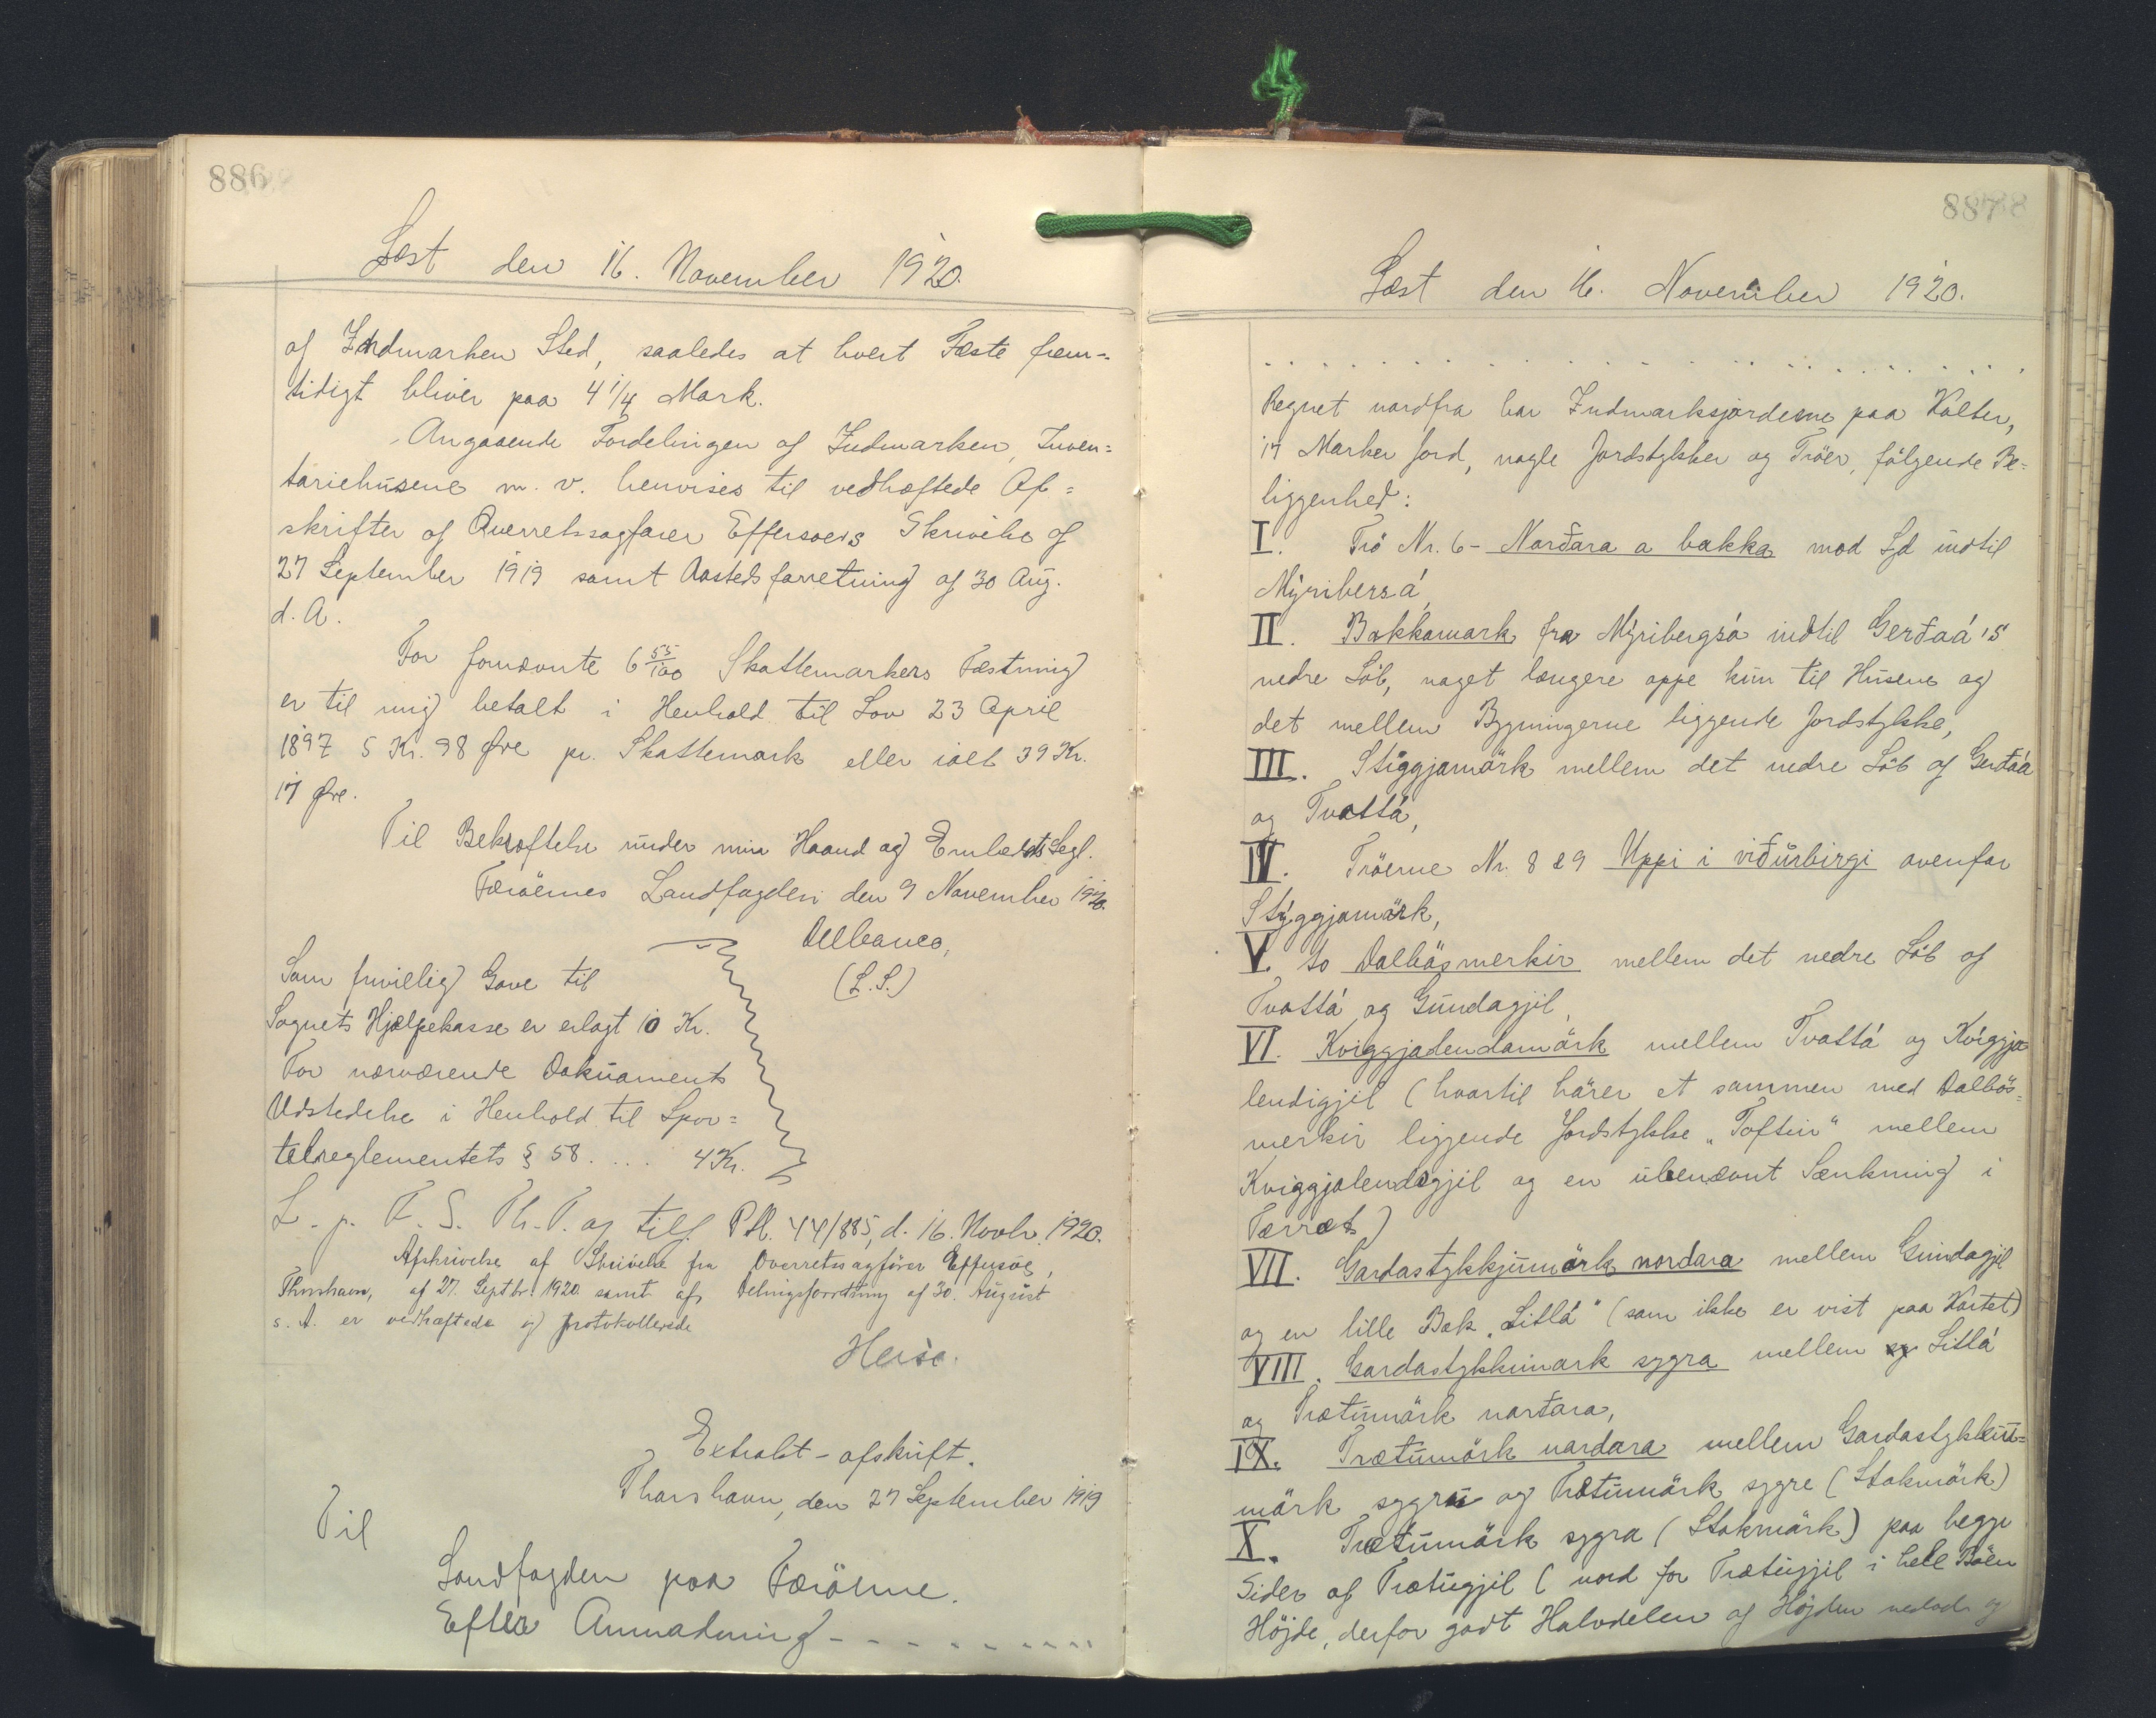 886
Læst den 16. November 1920.
af Indmarken Sted, saaledes at hvert Fæste frem-
tidigt bliver paa 4 1/4 Mark.
Angaaende Fordelingen af Indmarken, Inven-
tariehusene m. v. henvises til vedhæftede Af-
skrifter af Overretssagfører Effersøes Skrivelse af
27 September 1919 samt Aastedsforretning af 30 Aug.
d. A.
For fornævnte 6 55/100 Skattemarkers Fæstning
er til mig betalt i Henhold til Lov 23 April
1897 5 Kr. 98 Øre pr. Skattemark eller ialt 39 Kr.
17 Øre.
Til Bekræftelse under min Haand og Embeds Segl.
Færöernes Landfogderi den 9 November 1920.
(L.S.)
Som frivillig Gave til
Sognets Hjælpekasse er erlagt 10 Kr.
For nærværende Dokuments
Udstedelse i Henhold til Spor-
telreglementets § 58 .... 4 Kr.
L. p. F. S. Th.-P. og tilf. Ptl. 44/885, d. 16. Novbr. 1920.
Afskrivelse af Skrivelse fra Overretssagfører Effersøe,
Thorshavn, af 27. Septbr. 1920 samt af Delingsforretning af 30. August
s. A. er vedhæftede og protokollerede
Heise.
Extrakt-afskrift.
Thorshavn, den 27 September 1919
Til
Landfogden paa Færöerne.
Efter Anmodning - - - - - - - -
887
Læst den 16. November 1920.
. . . . . . . . . . . . . . . . . . . .
Regnet nordfra har Indmarksjorderne paa Kolter,
17 Marker Jord, nogle Jordstykker og Tröer, fölgende Be-
liggenhed:
I. Trö Nr. 6 - Norđara a bakka mod Syd indtil
Mýribersá,
II. Bakkamark fra Mýribergsá indtil Gerđaá's
nedre Löb, noget længere oppe kun til Husene og
det mellem Bygningerne liggende Jordstykke,
III. Stiggjamörk mellem det nedre Löb af Gerđaá
og Tvattá,
IV. Tröerne Nr. 8 & 9 Uppi i viđurbirgi ovenfor
Stýggjamörk,
V. to Dalbösmerkir mellem det nedre Löb af
Tvattá og Gundagjil,
VI. Kviggjalendamörk mellem Tvattá og Kviggja
lendigjil (hvortil hörer et sammen med Dalbös-
merkir liggende Jordstykke „Toftin“ mellem
Kviggjalendagjil og en ubenævnt Sænkning i
Terræt)
VII. Gardastykkjumörk nordara mellem Gundagjil
og en lille Bæk „Litlá“ (som ikke er vist paa Kortet)
VIII. Gardastykkimark sygra mellem Litlá
og Trætumörk norđara,
IX. Trætumörk nardara mellem Gardastykkju-
mörk sygru og Trætumörk sygre (Stakmörk)
X. Trætumörk sygra (Stakmörk) paa begge
Sider af Trætugjil (nord for Trætugjil i hele Böens
Höjde, derfor godt Halvdelen af Höjden nedad og